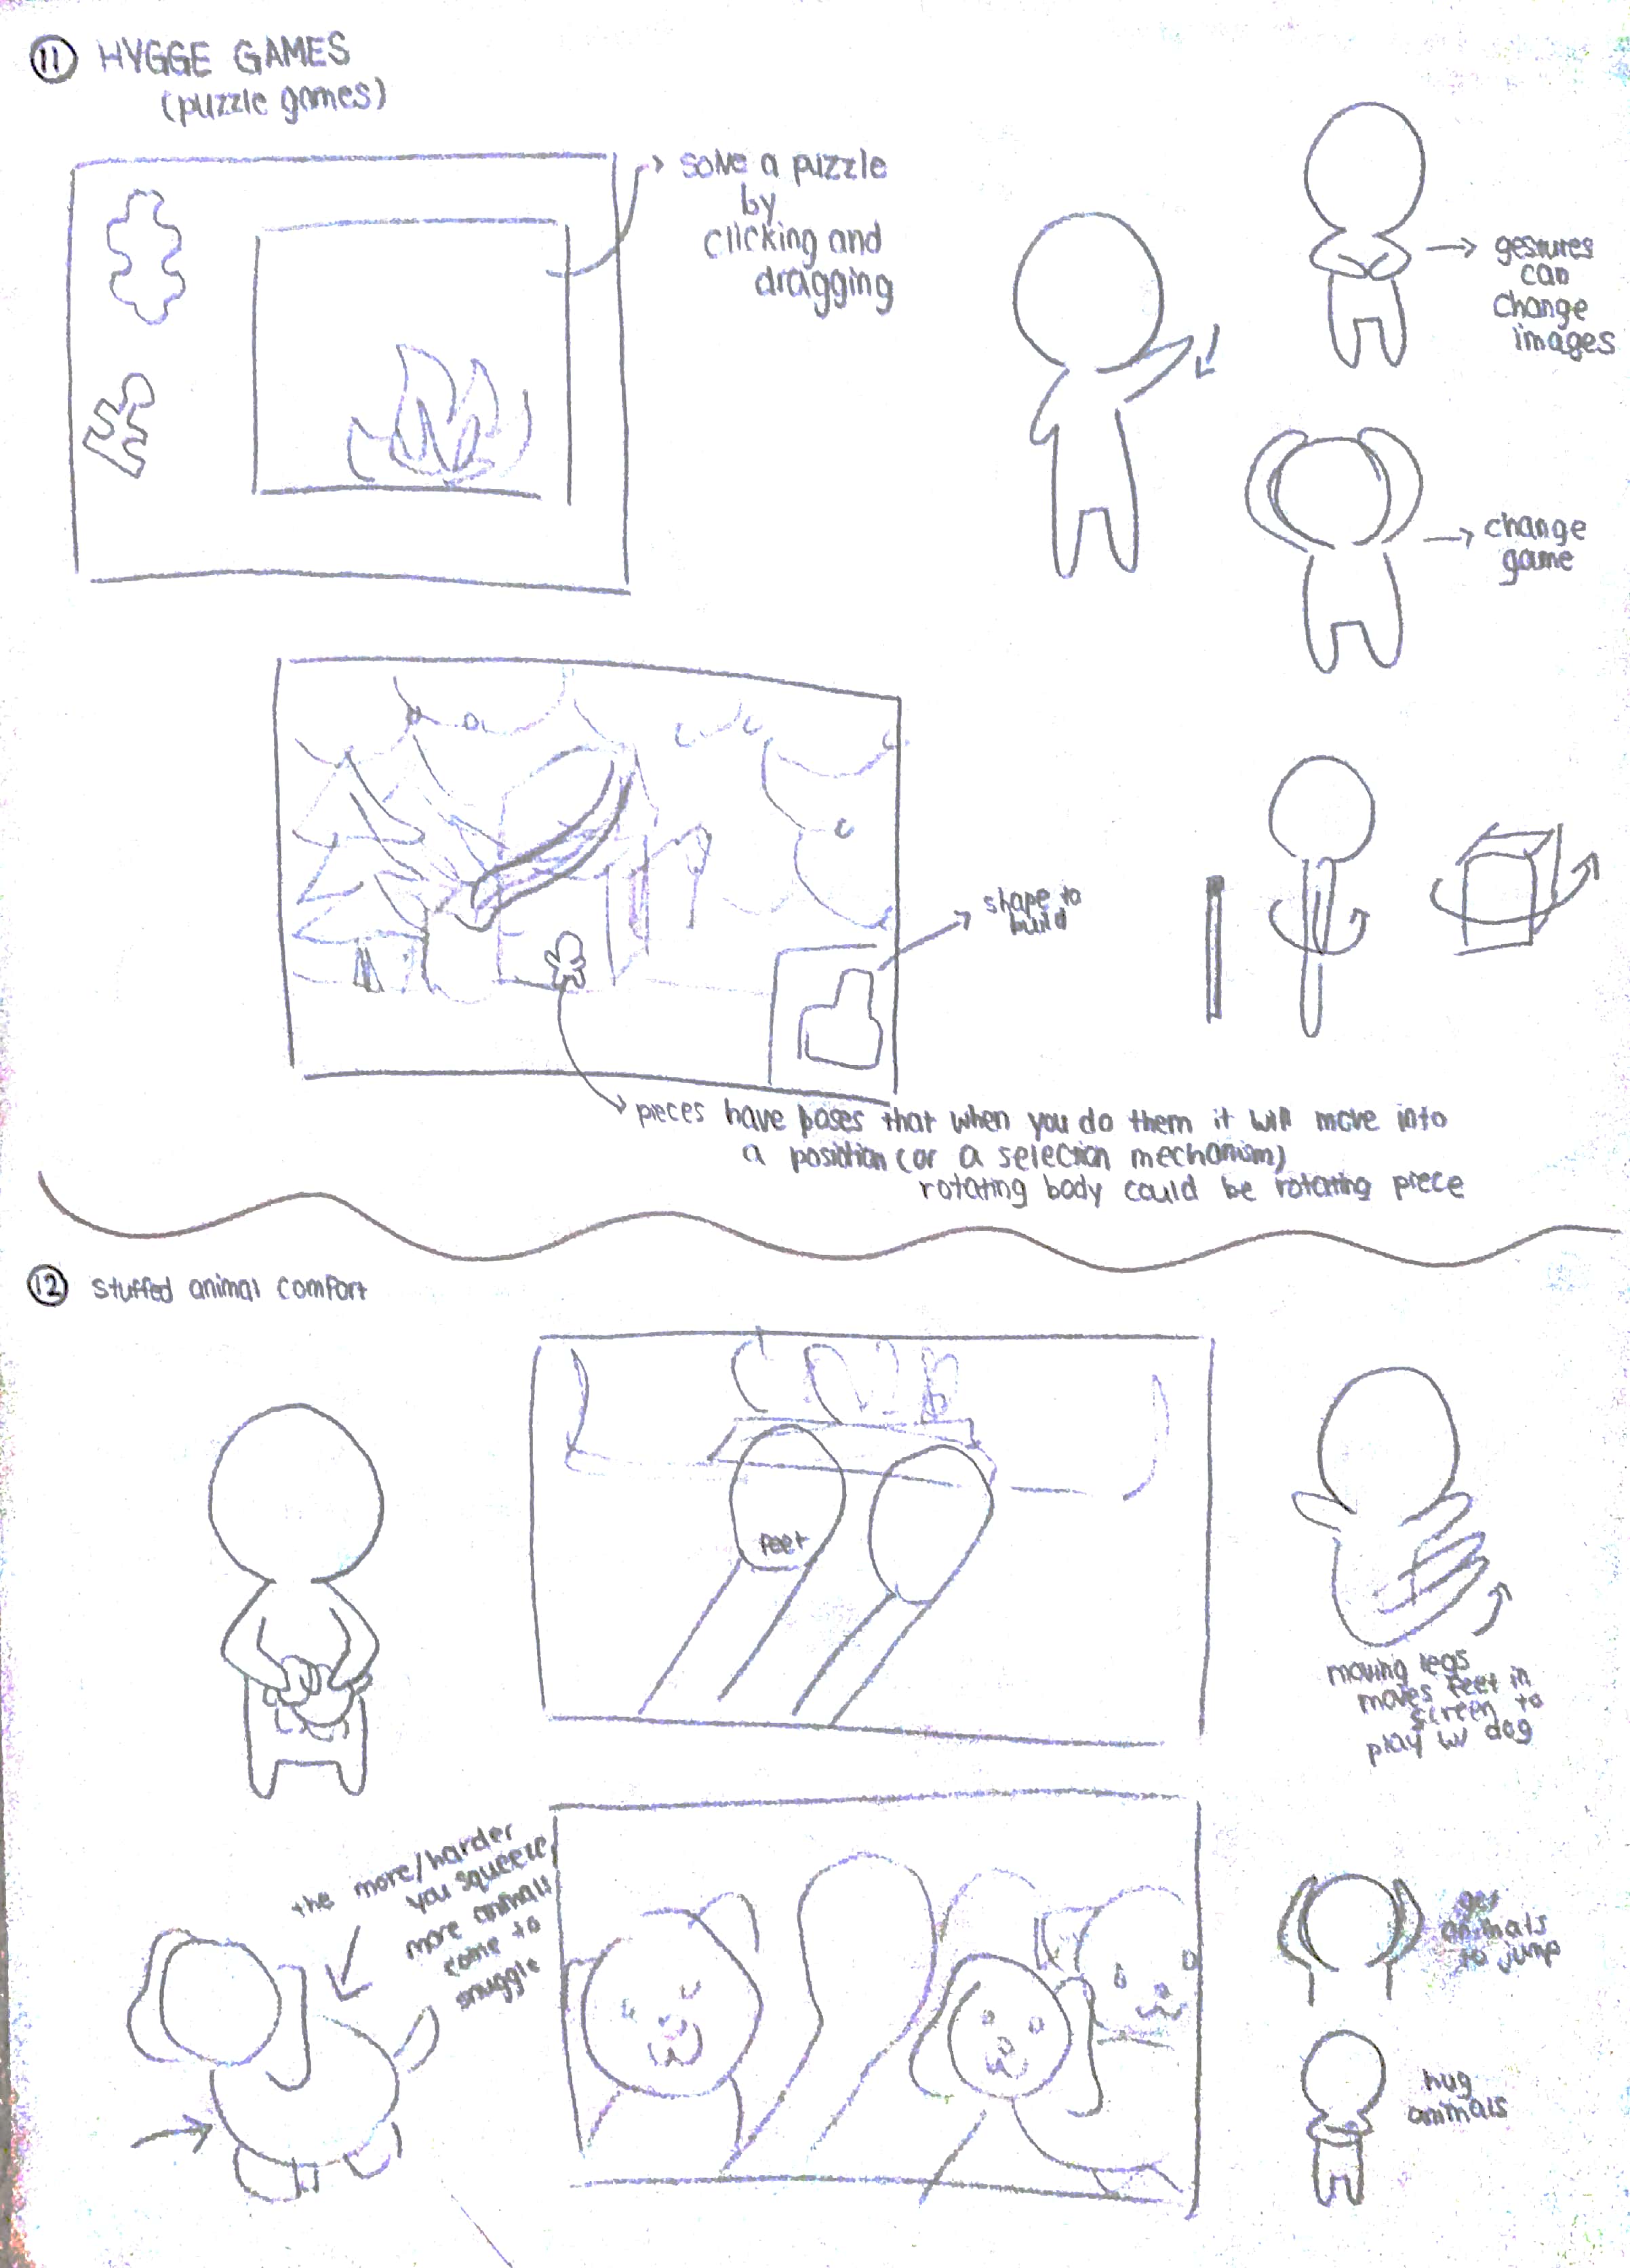 11 HYGGE GAMES
(puzzle games)
solve a puzzle
by
clicking and
dragging
gestures
can
change
images
change
game
shape to
build
pieces have poses that when you do them it will move into
a position (or a selection mechanism)
rotating body could be rotating piece
12 stuffed animal comfort
feet
moving legs
moves feet in
screen to
play w/ dog
the more/harder
you squeeze,
more animals
come to
snuggle
get
animals
to jump
hug
animals